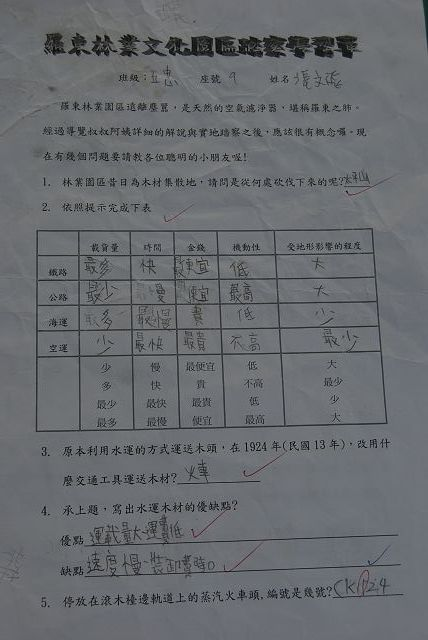 羅東林業文化園區踏察學習單
班級：五惠 座號 9 姓名
羅東林業園區遠離塵囂，是天然的空氣濾淨器，堪稱羅東之肺。
經過導覽叔叔阿姨詳細的解說與實地踏察之後，應該很有概念囉。現
在有幾個問題要請教各位聰明的小朋友喔!
1. 林業園區昔日為木材集散地，請問是從何處砍伐下來的呢?太平山
2. 依照提示完成下表
載貨量 時間 金錢 機動性 受地形影響的程度
鐵路 最多 快 最便宜 低 大
公路 最少 慢 便宜 最高 大
海運 多 最慢 貴 低 少
空運 少 最快 最貴 不高 最少
少 慢 最便宜 低 大
多 快 貴 不高 最少
最少 最快 最貴 低 少
最多 最慢 便宜 最高 大
3. 原本利用水運的方式運送木頭，在1924年(民國13年)，改用什
麼交通工具運送木材? 火車
4. 承上題，寫出水運木材的優缺點?
優點 運載量大、運費低
缺點 速度慢、裝卸費時。
5. 停放在滾木檯邊軌道上的蒸汽火車頭,編號是幾號?